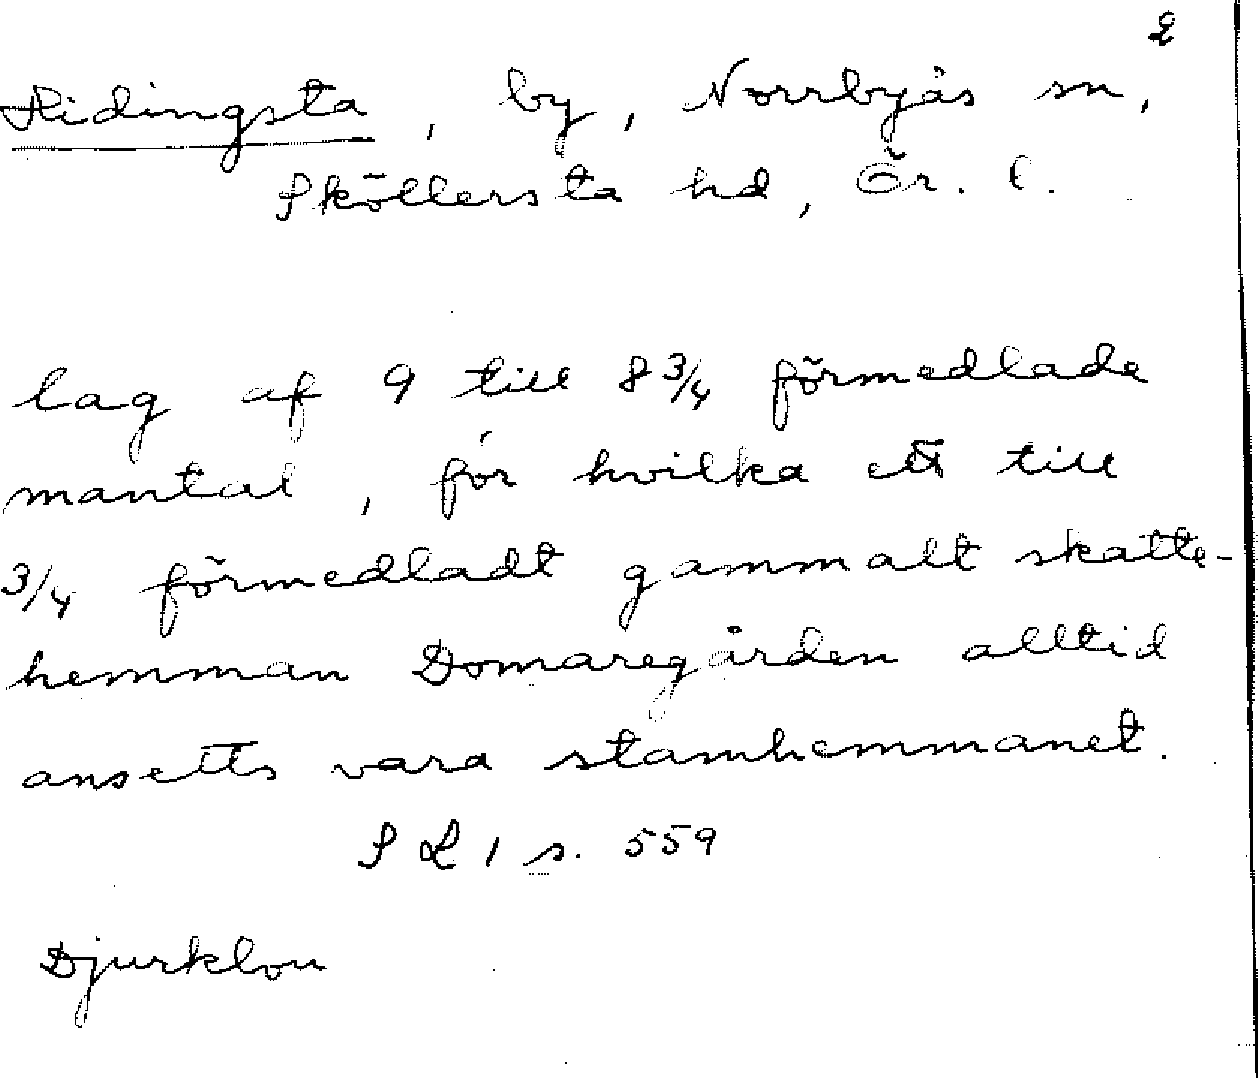 2
Hidingsta, by, Norrbyås sn,
Sköllersta hd, Ör. l.
lag af 9 till 8 3/4 förmedlade
mantal, för hvilka ett till
3/4 förmedladt gammalt skatte-
hemman Domaregården alltid
ansetts vara stamhemmanet.
S L 1 s. 559
Djurklou